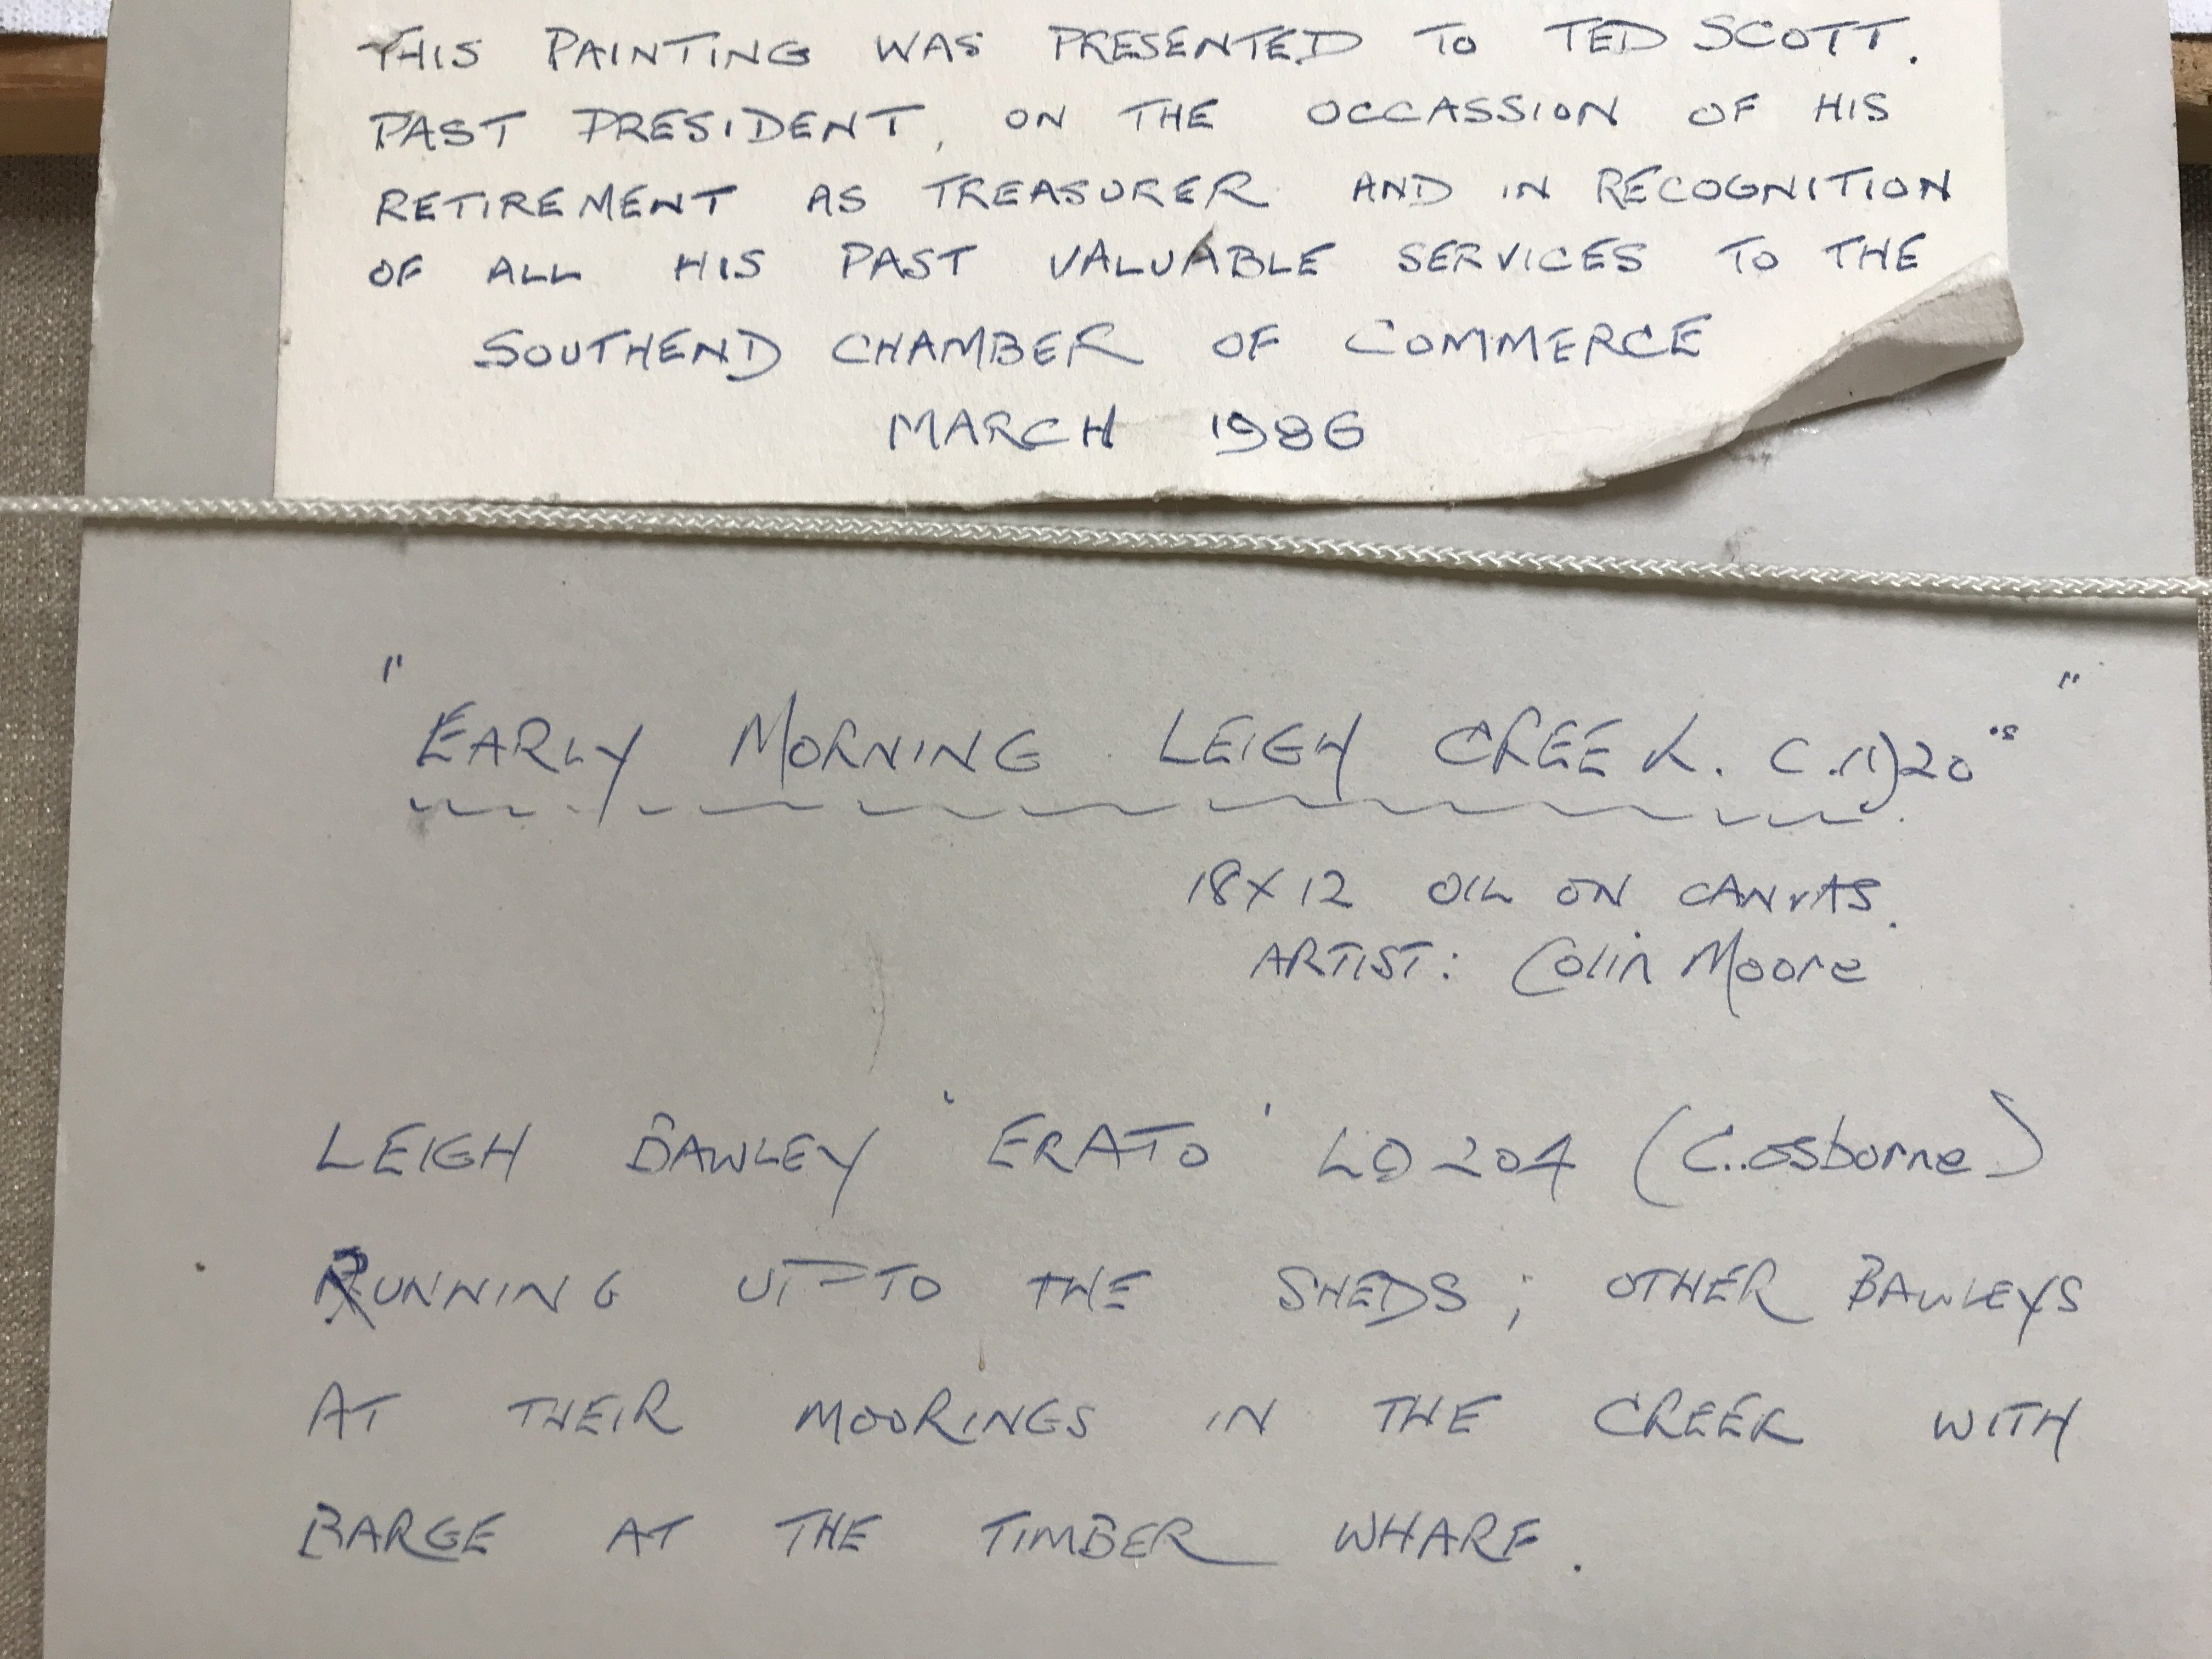 THIS PAINTING WAS PRESENTED TO TED SCOTT.
PAST PRESIDENT, ON THE OCCASSION OF HIS
RETIREMENT AS TREASURER AND IN RECOGNITION
OF ALL HIS PAST VALUABLE SERVICES TO THE
SOUTHEND CHAMBER OF COMMERCE
MARCH 1986
"EARLY MORNING LEIGH CREEK. C.1920's"
18X12 OIL ON CANVAS.
ARTIST: Colin Moore
LEIGH BAWLEY 'ERATO' LO 204 (C. Osborne)
RUNNING UP TO THE SHEDS; OTHER BAWLEYS
AT THEIR MOORINGS IN THE CREEK WITH
BARGE AT THE TIMBER WHARF.